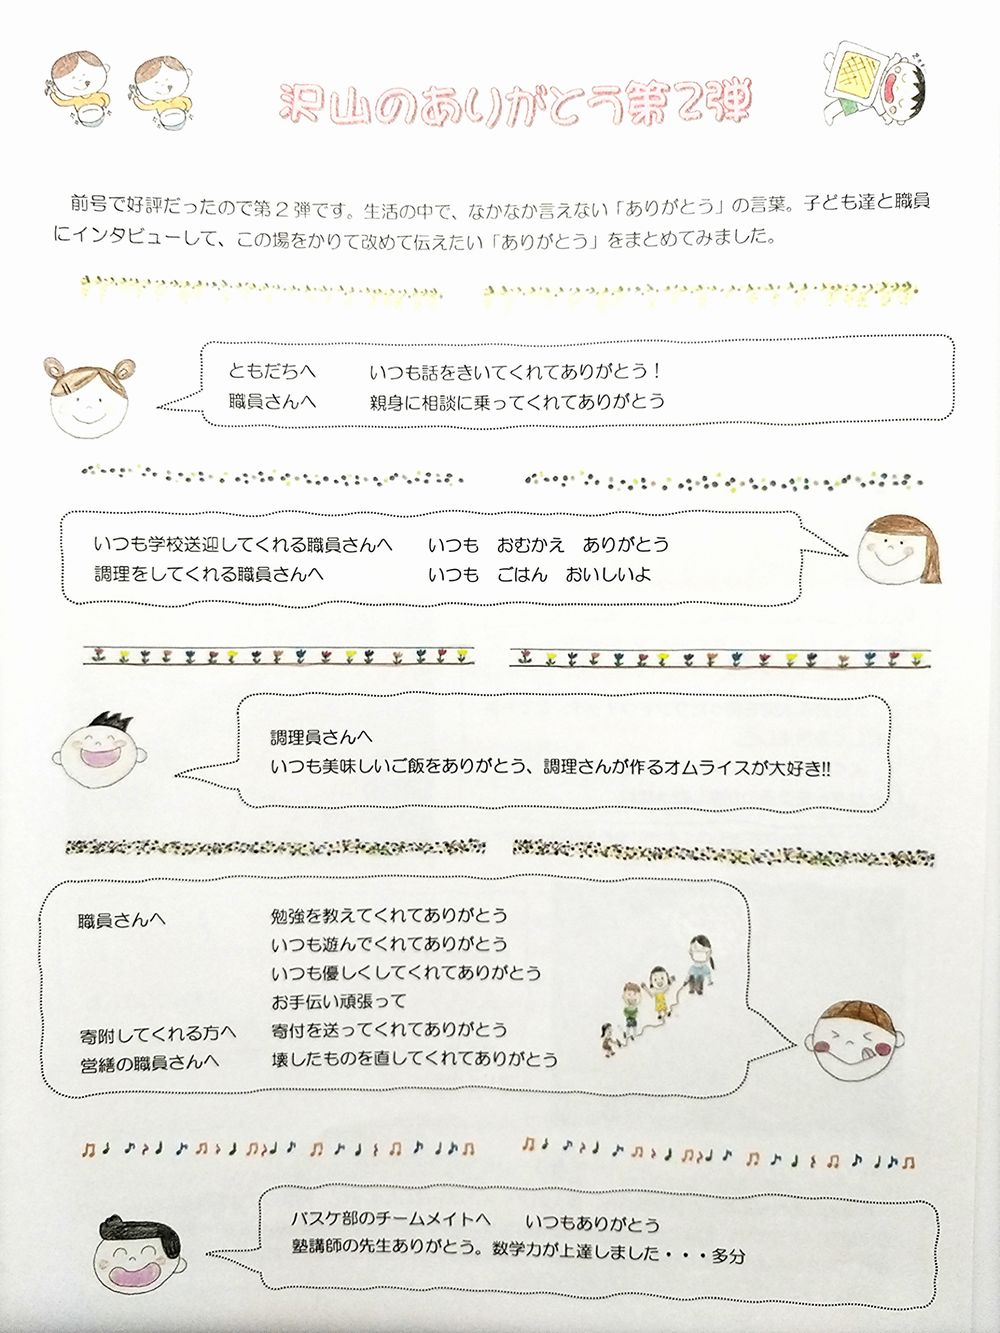 沢山のありがとう第2弾
前号で好評だったので第2弾です。生活の中で、なかなか言えない「ありがとう」の言葉。子ども達と職員
にインタビューして、この場をかりて改めて伝えたい「ありがとう」をまとめてみました。
ともだちへ　いつも話をきいてくれてありがとう！
職員さんへ　親身に相談に乗ってくれてありがとう
いつも学校送迎してくれる職員さんへ　いつも　おむかえ　ありがとう
調理をしてくれる職員さんへ　いつも　ごはん　おいしいよ
調理員さんへ
いつも美味しいご飯をありがとう、調理さんが作るオムライスが大好き!!
職員さんへ　勉強を教えてくれてありがとう
いつも遊んでくれてありがとう
いつも優しくしてくれてありがとう
お手伝い頑張って
寄附してくれる方へ　寄付を送ってくれてありがとう
営繕の職員さんへ　壊したものを直してくれてありがとう
バスケ部のチームメイトへ　いつもありがとう
塾講師の先生ありがとう。数学力が上達しました・・・多分